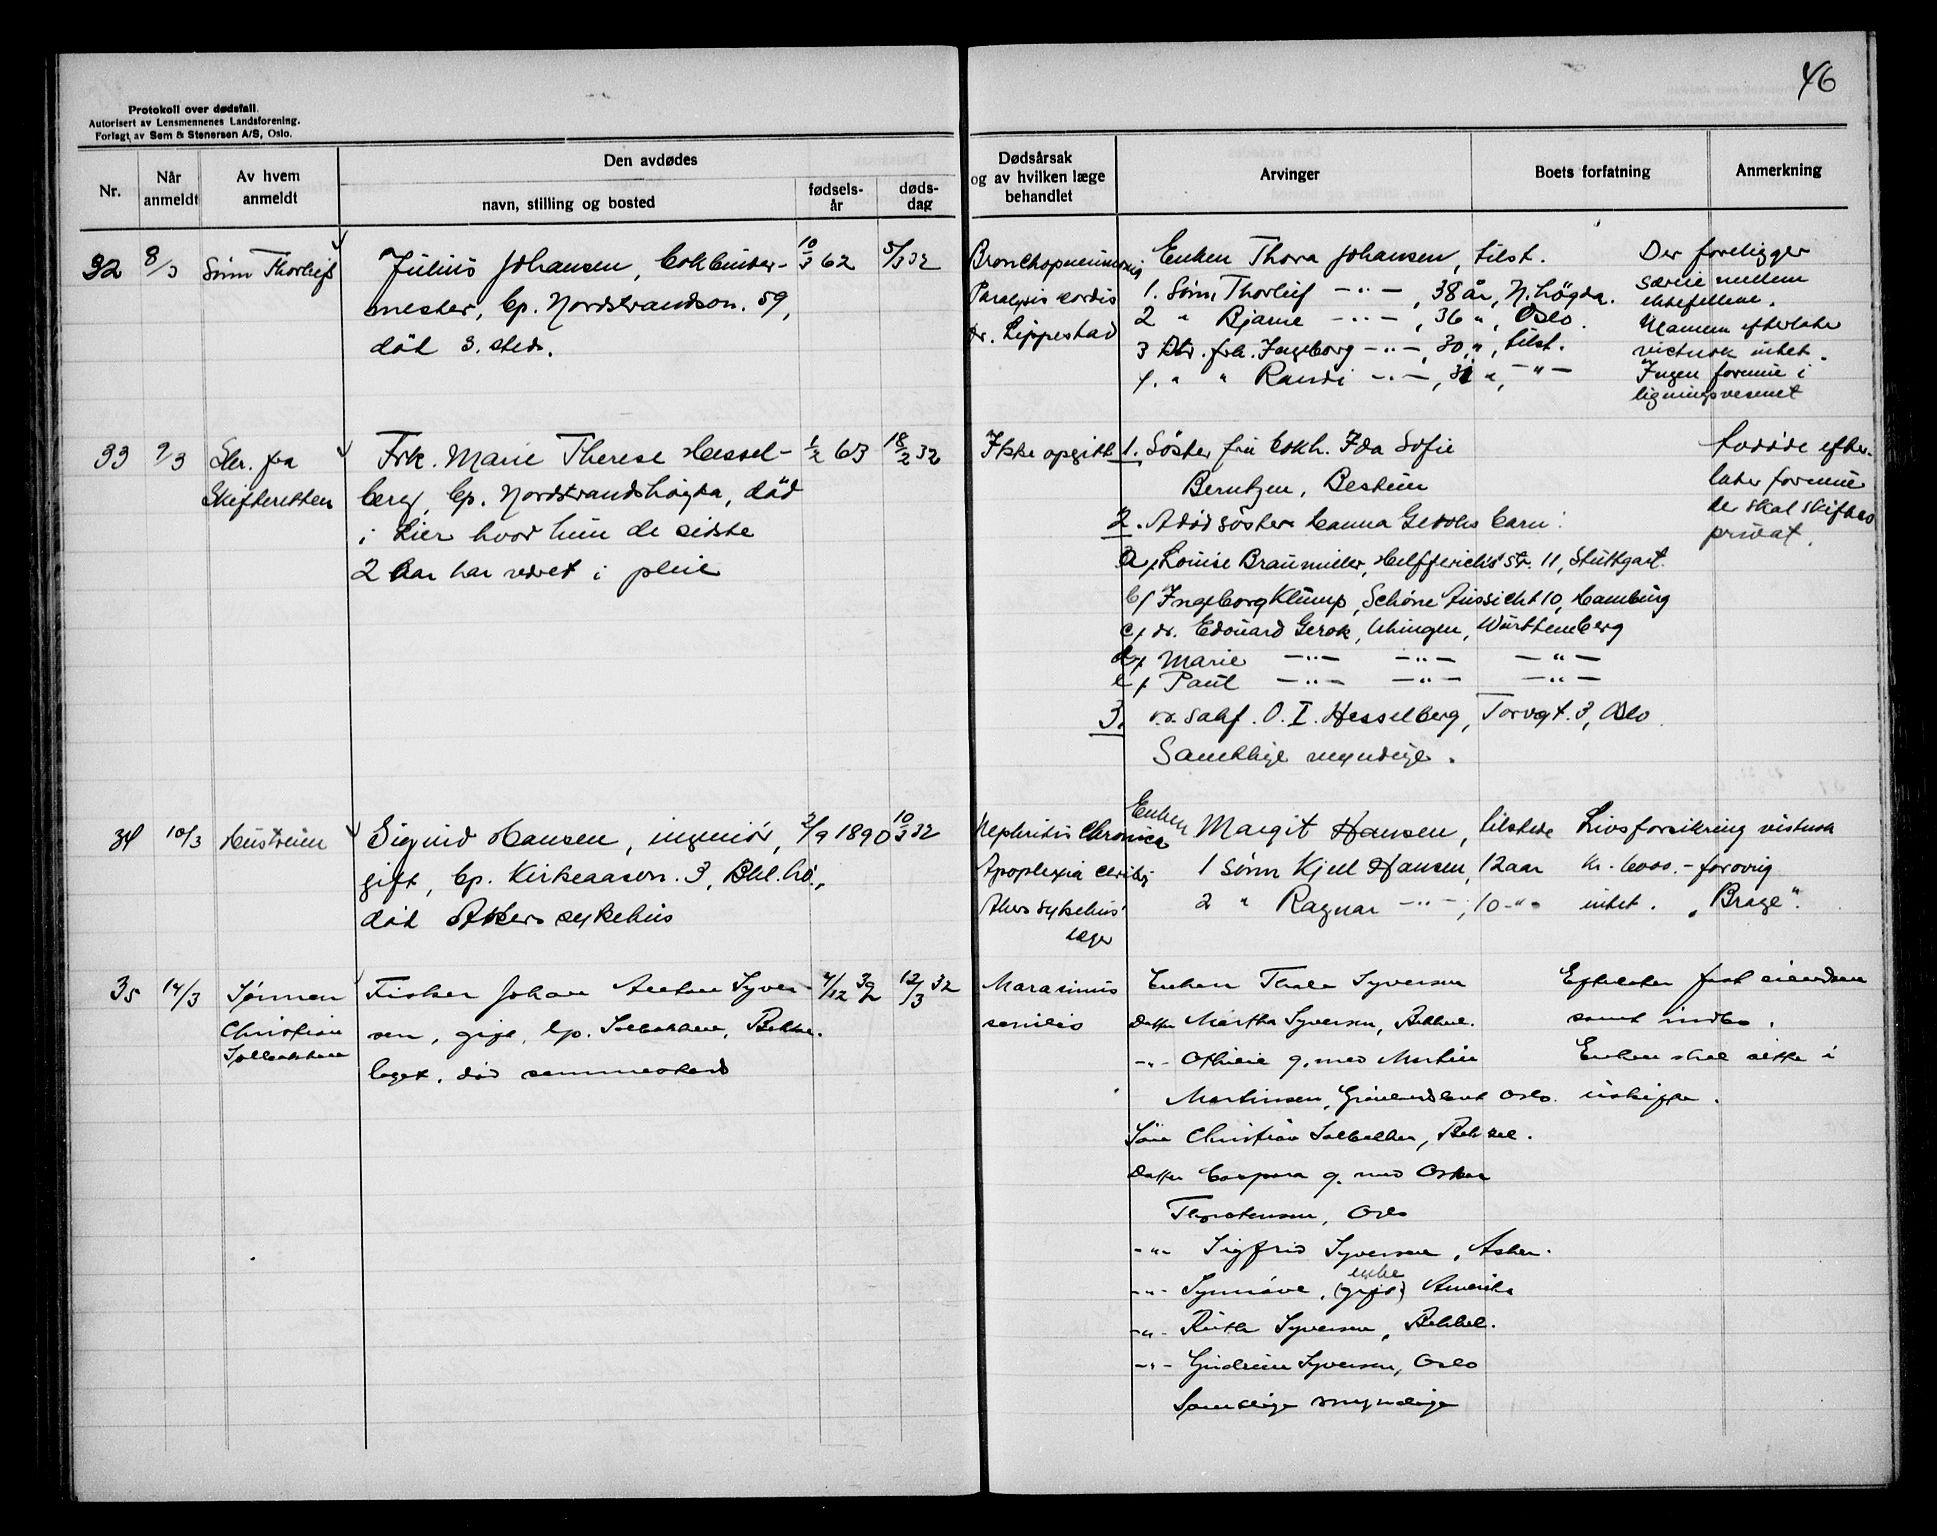 46
Protokoll over dødsfall.
Autorisert av Lensmennenes Landsforening.
Forlagt av Sem & Stenersen A/S, Oslo.
Nr.
Når anmeldt
Av hvem anmeldt
Den avdødes
navn, stilling og bosted
fødsels-år
døds-dag
Dødsårsak og av hvilken læge behandlet
Arvinger
Boets forfatning
Anmerkning
32 8/3 Sønn Thorleif
Julius Johansen, bokbinder-
mester, bp. Nordstrandson. 59,
død s. steds.
10/3 62
5/3 32
Bronchopneumoni
Paralysis cordis
dr. Lippestad
Enken Thora Johansen, tilst.
1. Sønn Thorleif —"—, 38 år, N.høgda.
2 " Bjarne —"—, 36 ", Oslo.
3 Dtr. frk. Ingeborg —"—, 30 ", tilst.
4. " " Randi —"—, 31 ", —"—
Der foreligger
særeie mellem
ektefellene.
Mannen efterlater
visstnok intet.
Ingen formue i
ligningsvesenet
33 9/3 Skr. fra
Skifteretten
Frk. Marie Therese Hessel-
berg, bp. Nordstrandshøgda, død
i Lier hvor hun de sidste
2 aar har været i pleie
1/2 63
18/2 32
Ikke opgitt
1. Søster fru bokh. Ida Sofie
Berntzen, Bestum
2. Adød søster Hanna Geroks barn:
a, Louise Braumüller, Helfferichs str. 11, Stuttgart.
b, Ingeborg Klump, Schöne Aussicht 10, Hamburg
c, dr. Edouard Gerok, Uhingen, Württemberg
d, Marie —"— —"— —"—
e, Paul —"— —"— —"—
3. o.r. sakf. O. I. Hesselberg, Torvgt. 3, Oslo.
Samtlige myndige.
Avdøde efter-
later formue
der skal skiftes
privat.
34 10/3 Hustruen
Sigurd Hansen, ingeniør,
gift, bp. Kirkeaasen. 3, Bkl.hø.,
død Akers sykehus
2/9 1890
10/3 32
Nephritis Chronica
Apoplexia cerebri
Akers sykehus'
læger
Enken Margit Hansen, tilstede
1 Sønn Kjell Hansen, 12 aar
2 " Ragnar —"—, 10 —"—
Livsforsikring vistnok
kr. 6000.- forøvrig
intet. „Brage".
35 14/3 Sønnen
Christian
Solbakken
Fisker Johan Anton Syver-
sen, gift, bp. Solbakken, Bekke-
laget, død sammesteds
4/12 32
12/3 32
Marasmus
senilis
Enken Thale Syversen
Datter Martha Syversen, Bekkel.
—"— Othilie g. med Martin
Martinsen, Grønlandsleret Oslo.
Søn Christian Solbakken, Bekkel.
Datter Caspara g. med Oskar
Thorstensen, Oslo
—"— Sigfrid Syversen, Asker.
enke
—"— Synnøve, (gift) Amerika
—"— Ruth Syversen, Bekkel.
—"— Gudrun Syversen, Oslo
Samtlige myndige
Efterlater fast eiendom
samt indbo.
Enken skal sitte i
uskifte.